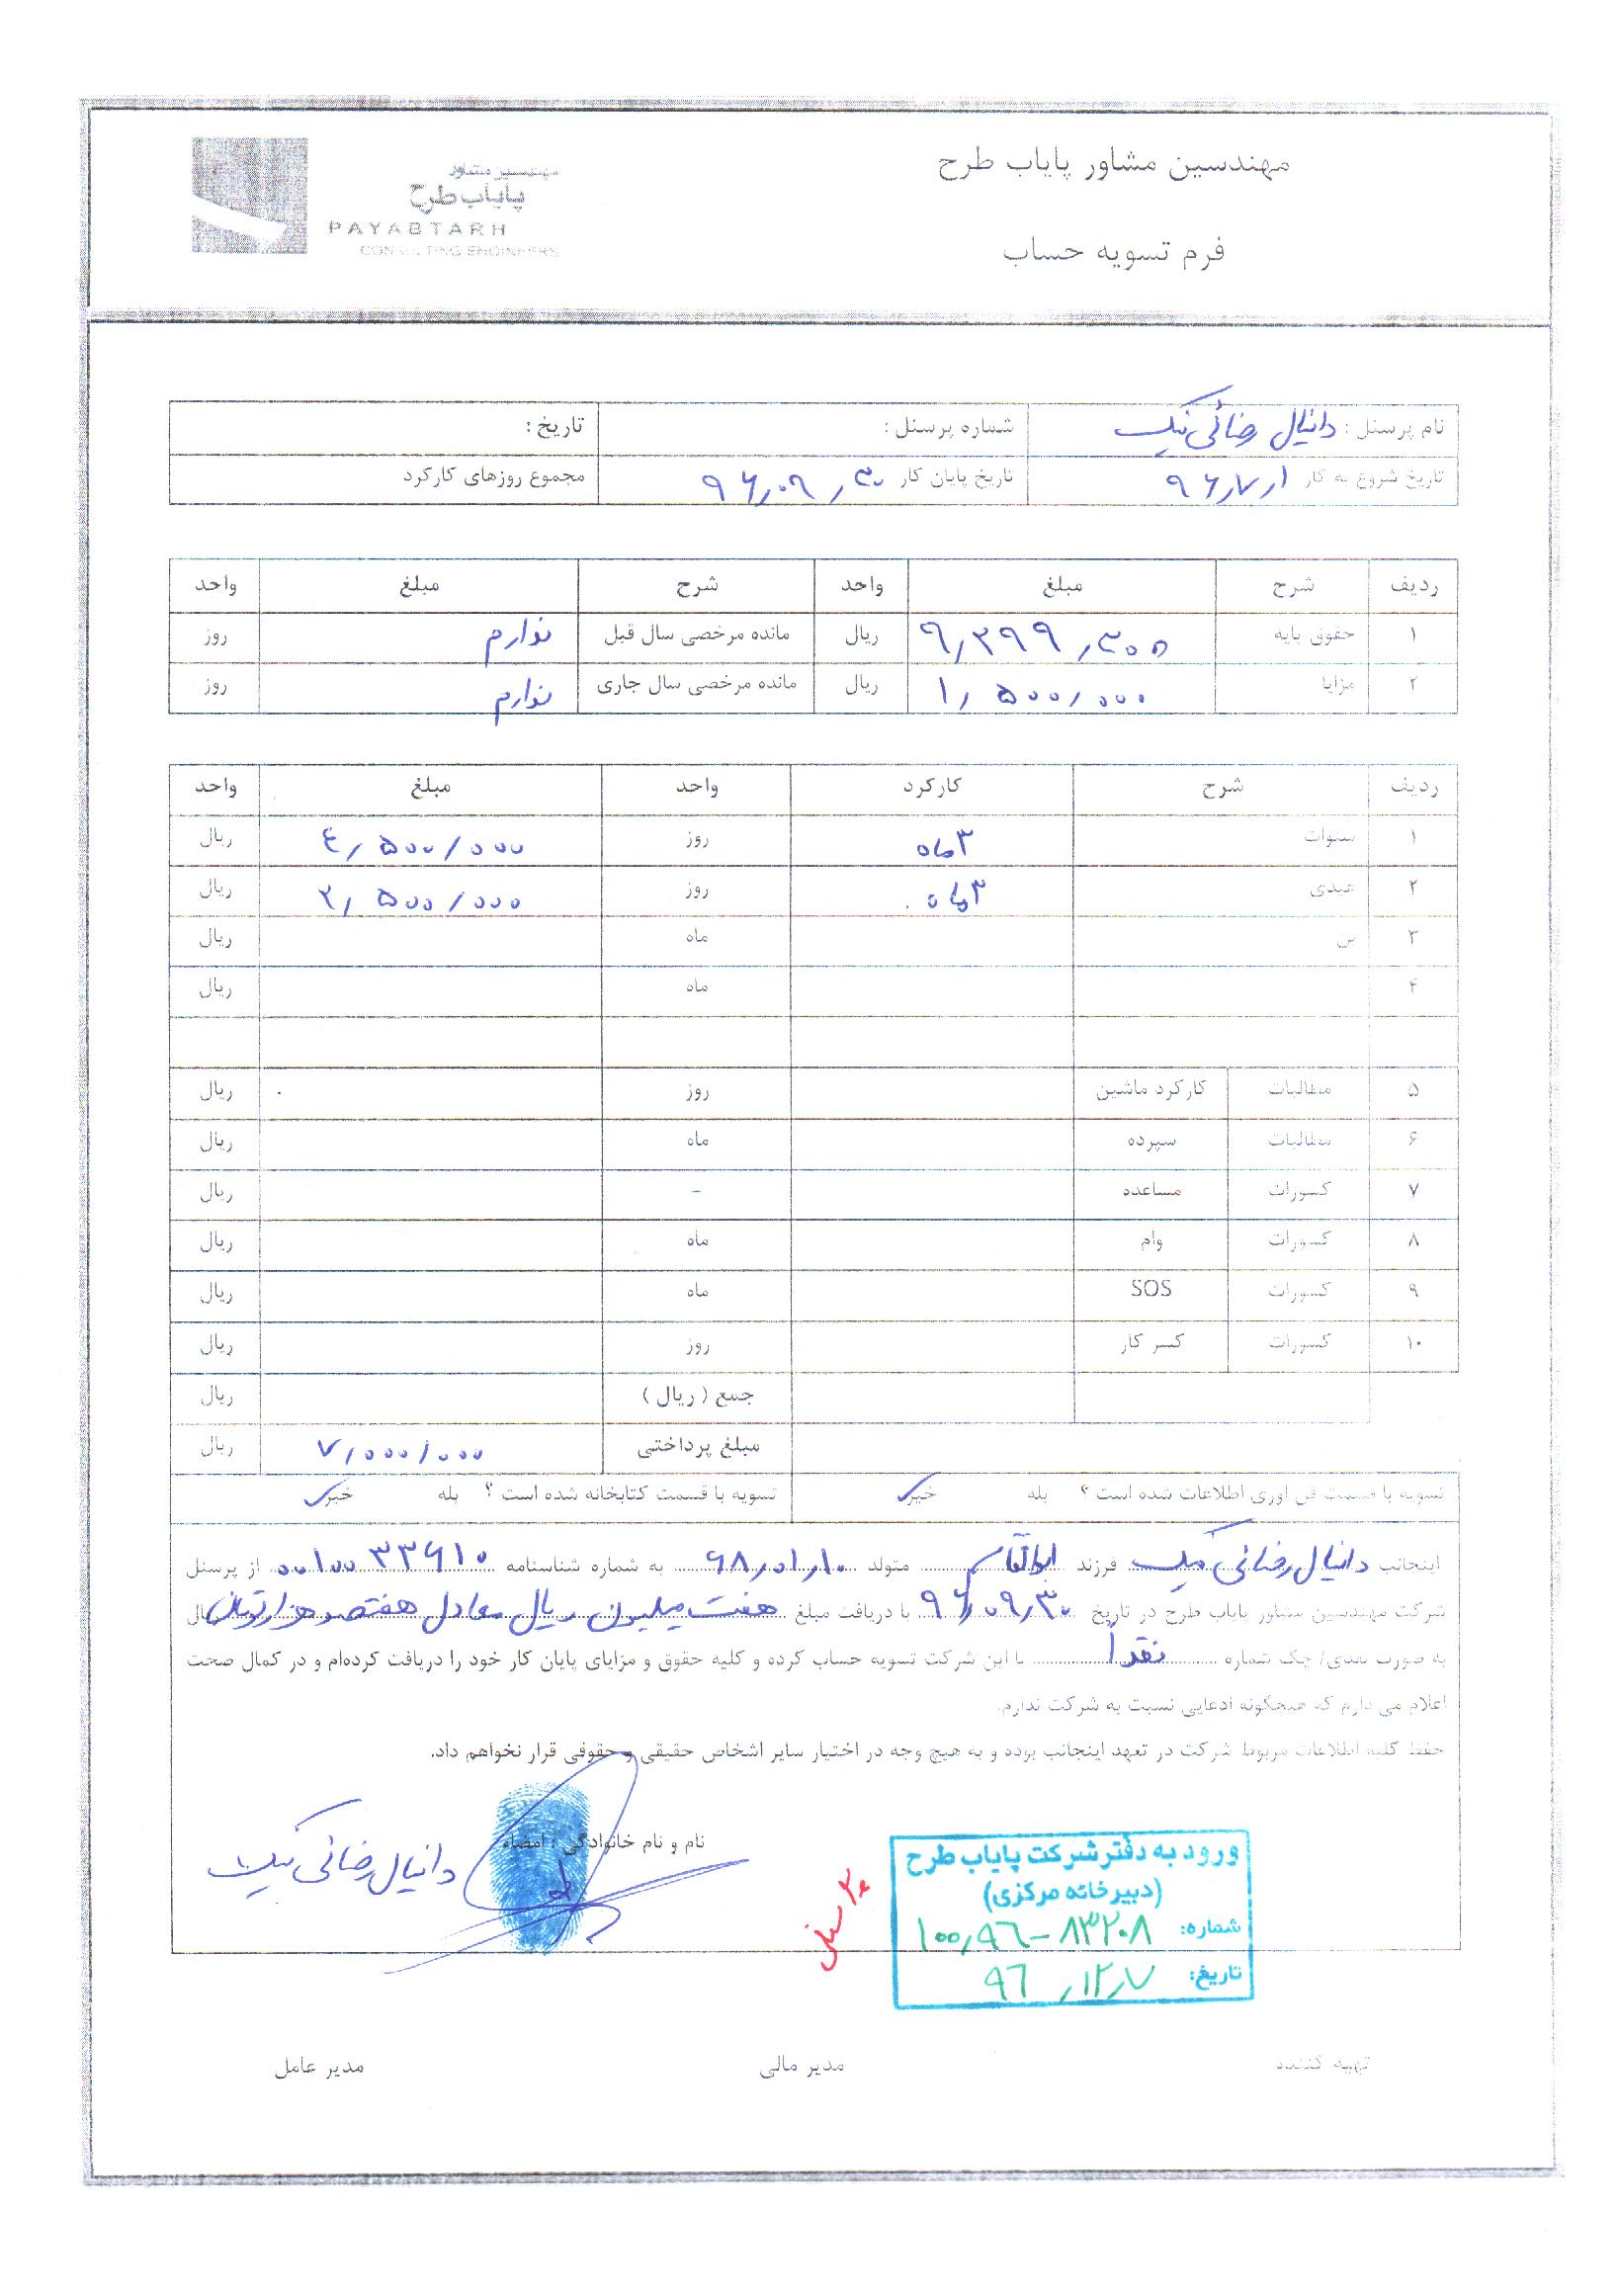 مهندسین مشاور پایاب طرح
مهندسین مشاور
پایاب طرح
PAYABTARH
CONSULTING ENGINEERS
فرم تسویه حساب
نام پرسنل : دانیال رضائی نیک شماره پرسنل : تاریخ :
تاریخ شروع به کار ۹۶/۷/۱ تاریخ پایان کار ۹۶/۰۹/۳۰ مجموع روزهای کارکرد
ردیف شرح مبلغ واحد شرح مبلغ واحد
۱ حقوق پایه ریال مانده مرخصی سال قبل ندارم روز
۲ مزایا ۱/۵۰۰/۰۰۰ ریال مانده مرخصی سال جاری ندارم روز
ردیف شرح کارکرد واحد مبلغ واحد
۱ سنوات ۳ماه روز ۴/۵۰۰/۰۰۰ ریال
۲ عیدی ۳ماه روز ۲/۵۰۰/۰۰۰ ریال
۳ بن ماه ریال
۴ ماه ریال
۵ مطالبات کارکرد ماشین روز ریال
۶ مطالبات سپرده ماه ریال
۷ کسورات مساعده - ریال
۸ کسورات وام ماه ریال
۹ کسورات SOS ماه ریال
۱۰ کسورات کسر کار روز ریال
جمع ( ریال ) ریال
مبلغ پرداختی ۷/۰۰۰/۰۰۰ ریال
تسویه با قسمت فن آوری اطلاعات شده است ؟ بله خیر تسویه با قسمت کتابخانه شده است ؟ بله خیر
اینجانب دانیال رضائی نیک فرزند ابوالقاسم متولد ۶۸/۰۱/۱۰ به شماره شناسنامه ۰۰۱۰۰۳۳۶۱۰ از پرسنل
شرکت مهندسین مشاور پایاب طرح در تاریخ ۹۶/۰۹/۳۰ با دریافت مبلغ هفت میلیون ریال معادل هفتصد هزار تومان ریال
به صورت نقدی/ چک شماره نقداً با این شرکت تسویه حساب کرده و کلیه حقوق و مزایای پایان کار خود را دریافت کرده‌ام و در کمال صحت
اعلام می دارم که هیچگونه ادعایی نسبت به شرکت ندارم.
حفظ کلیه اطلاعات مربوط شرکت در تعهد اینجانب بوده و به هیچ وجه در اختیار سایر اشخاص حقیقی و حقوقی قرار نخواهم داد.
نام و نام خانوادگی : امضاء
دانیال رضائی نیک
ورود به دفتر شرکت پایاب طرح
(دبیرخانه مرکزی)
شماره: ۱۰۰/۹۶-۸۳۲۰۸
تاریخ: ۹۶/۱۲/۷
تهیه کننده مدیر مالی مدیر عامل